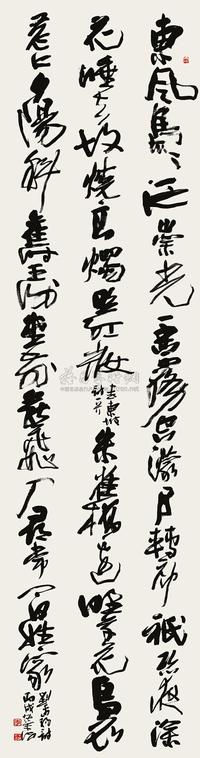 東風裊々泛崇光香霧空濛月轉廊祇恐夜深
花睡去故燒高燭照紅妝朱雀橋邊野草花烏衣
巷口夕陽斜舊王謝堂前燕飛入尋常百姓家
劉禹錫詩
丙戌